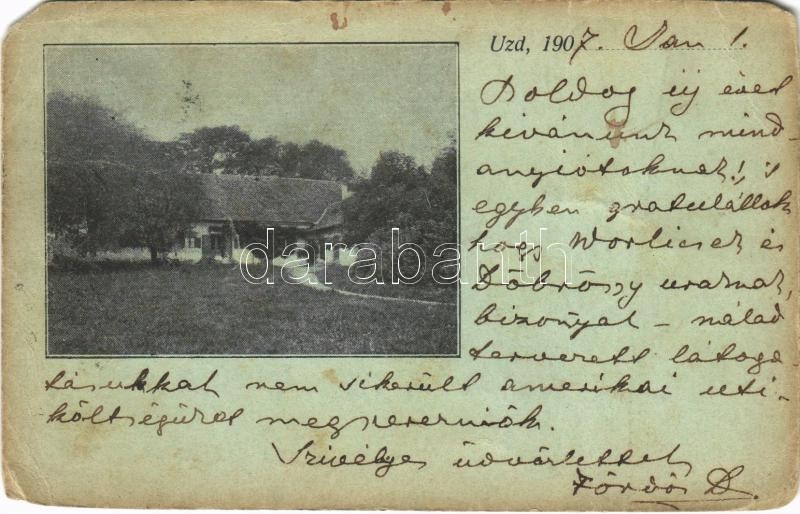 Uzd, 1907. Jan 1.
Boldog új évet
kivánunk mind-
anyiótoknak!, s
egyben gratulállok
hogy Worlicsek és
Döbrössy uraknak,
bizonyal – nálad
tervezett látoga-
tásukkal nem sikerült amerikai uti-
költségüket megszerezniök.
Szivélyes üdvözlettel
Vörös D.
darabanth